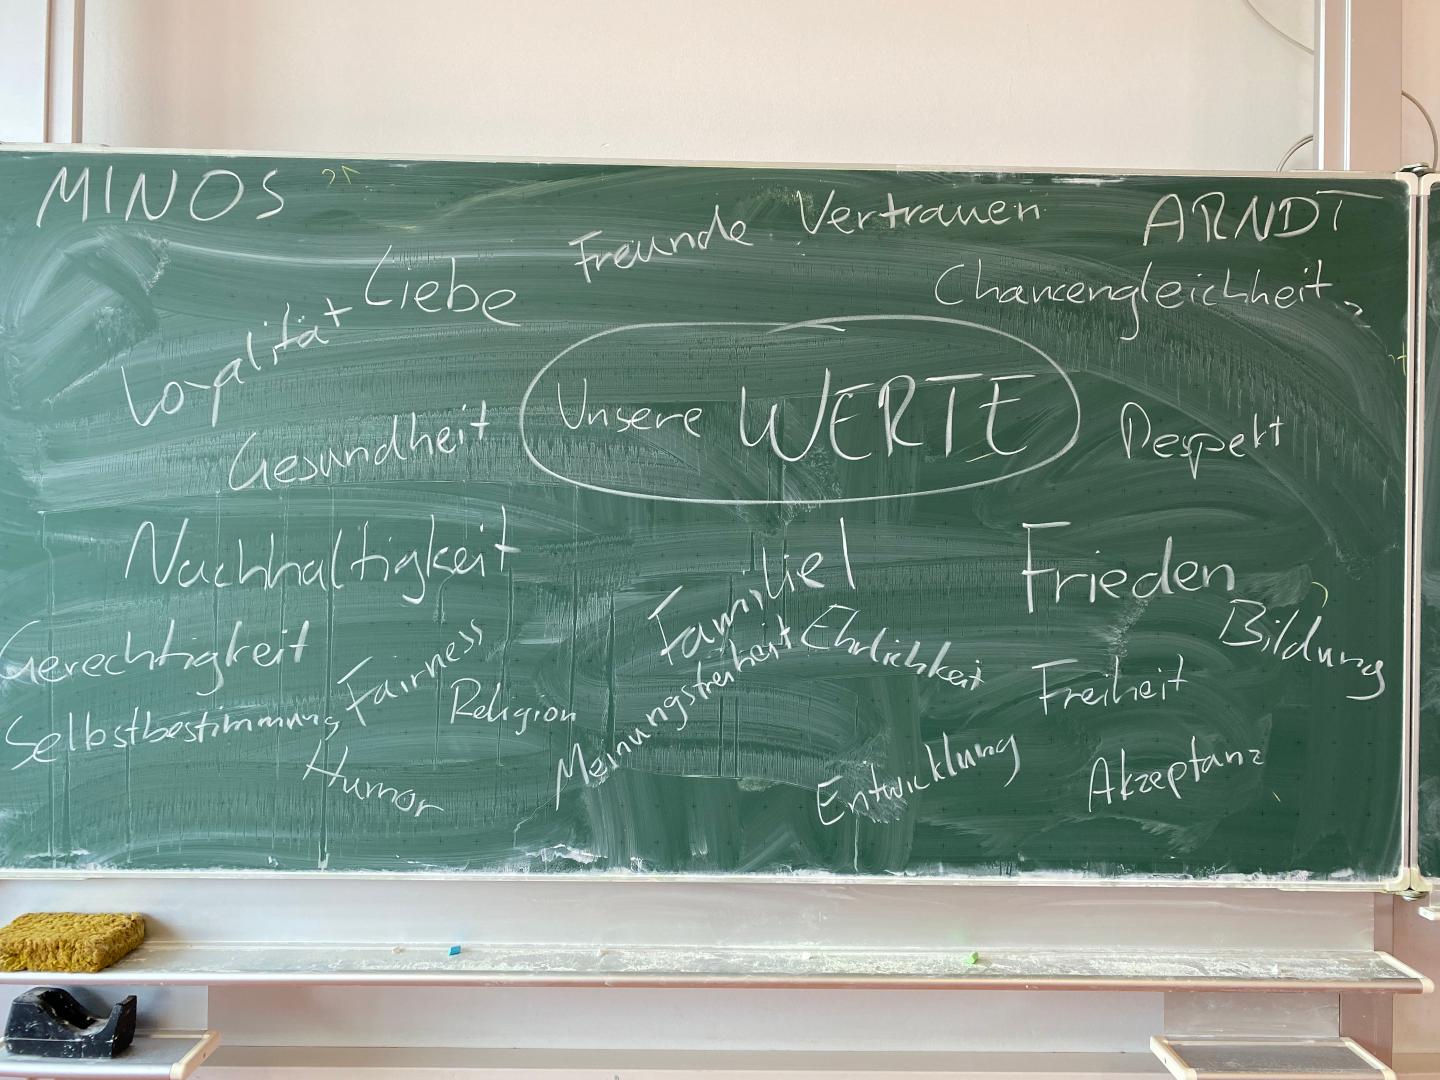 MINOS
Freunde
Vertrauen
ARNDT
Liebe
Chancengleichheit
Loyalität
Unsere WERTE
Gesundheit
Respekt
Nachhaltigkeit
Familie!
Frieden
Bildung
Gerechtigkeit
Fairness
Meinungsfreiheit
Ehrlichkeit
Freiheit
Selbstbestimmung
Religion
Humor
Entwicklung
Akzeptanz